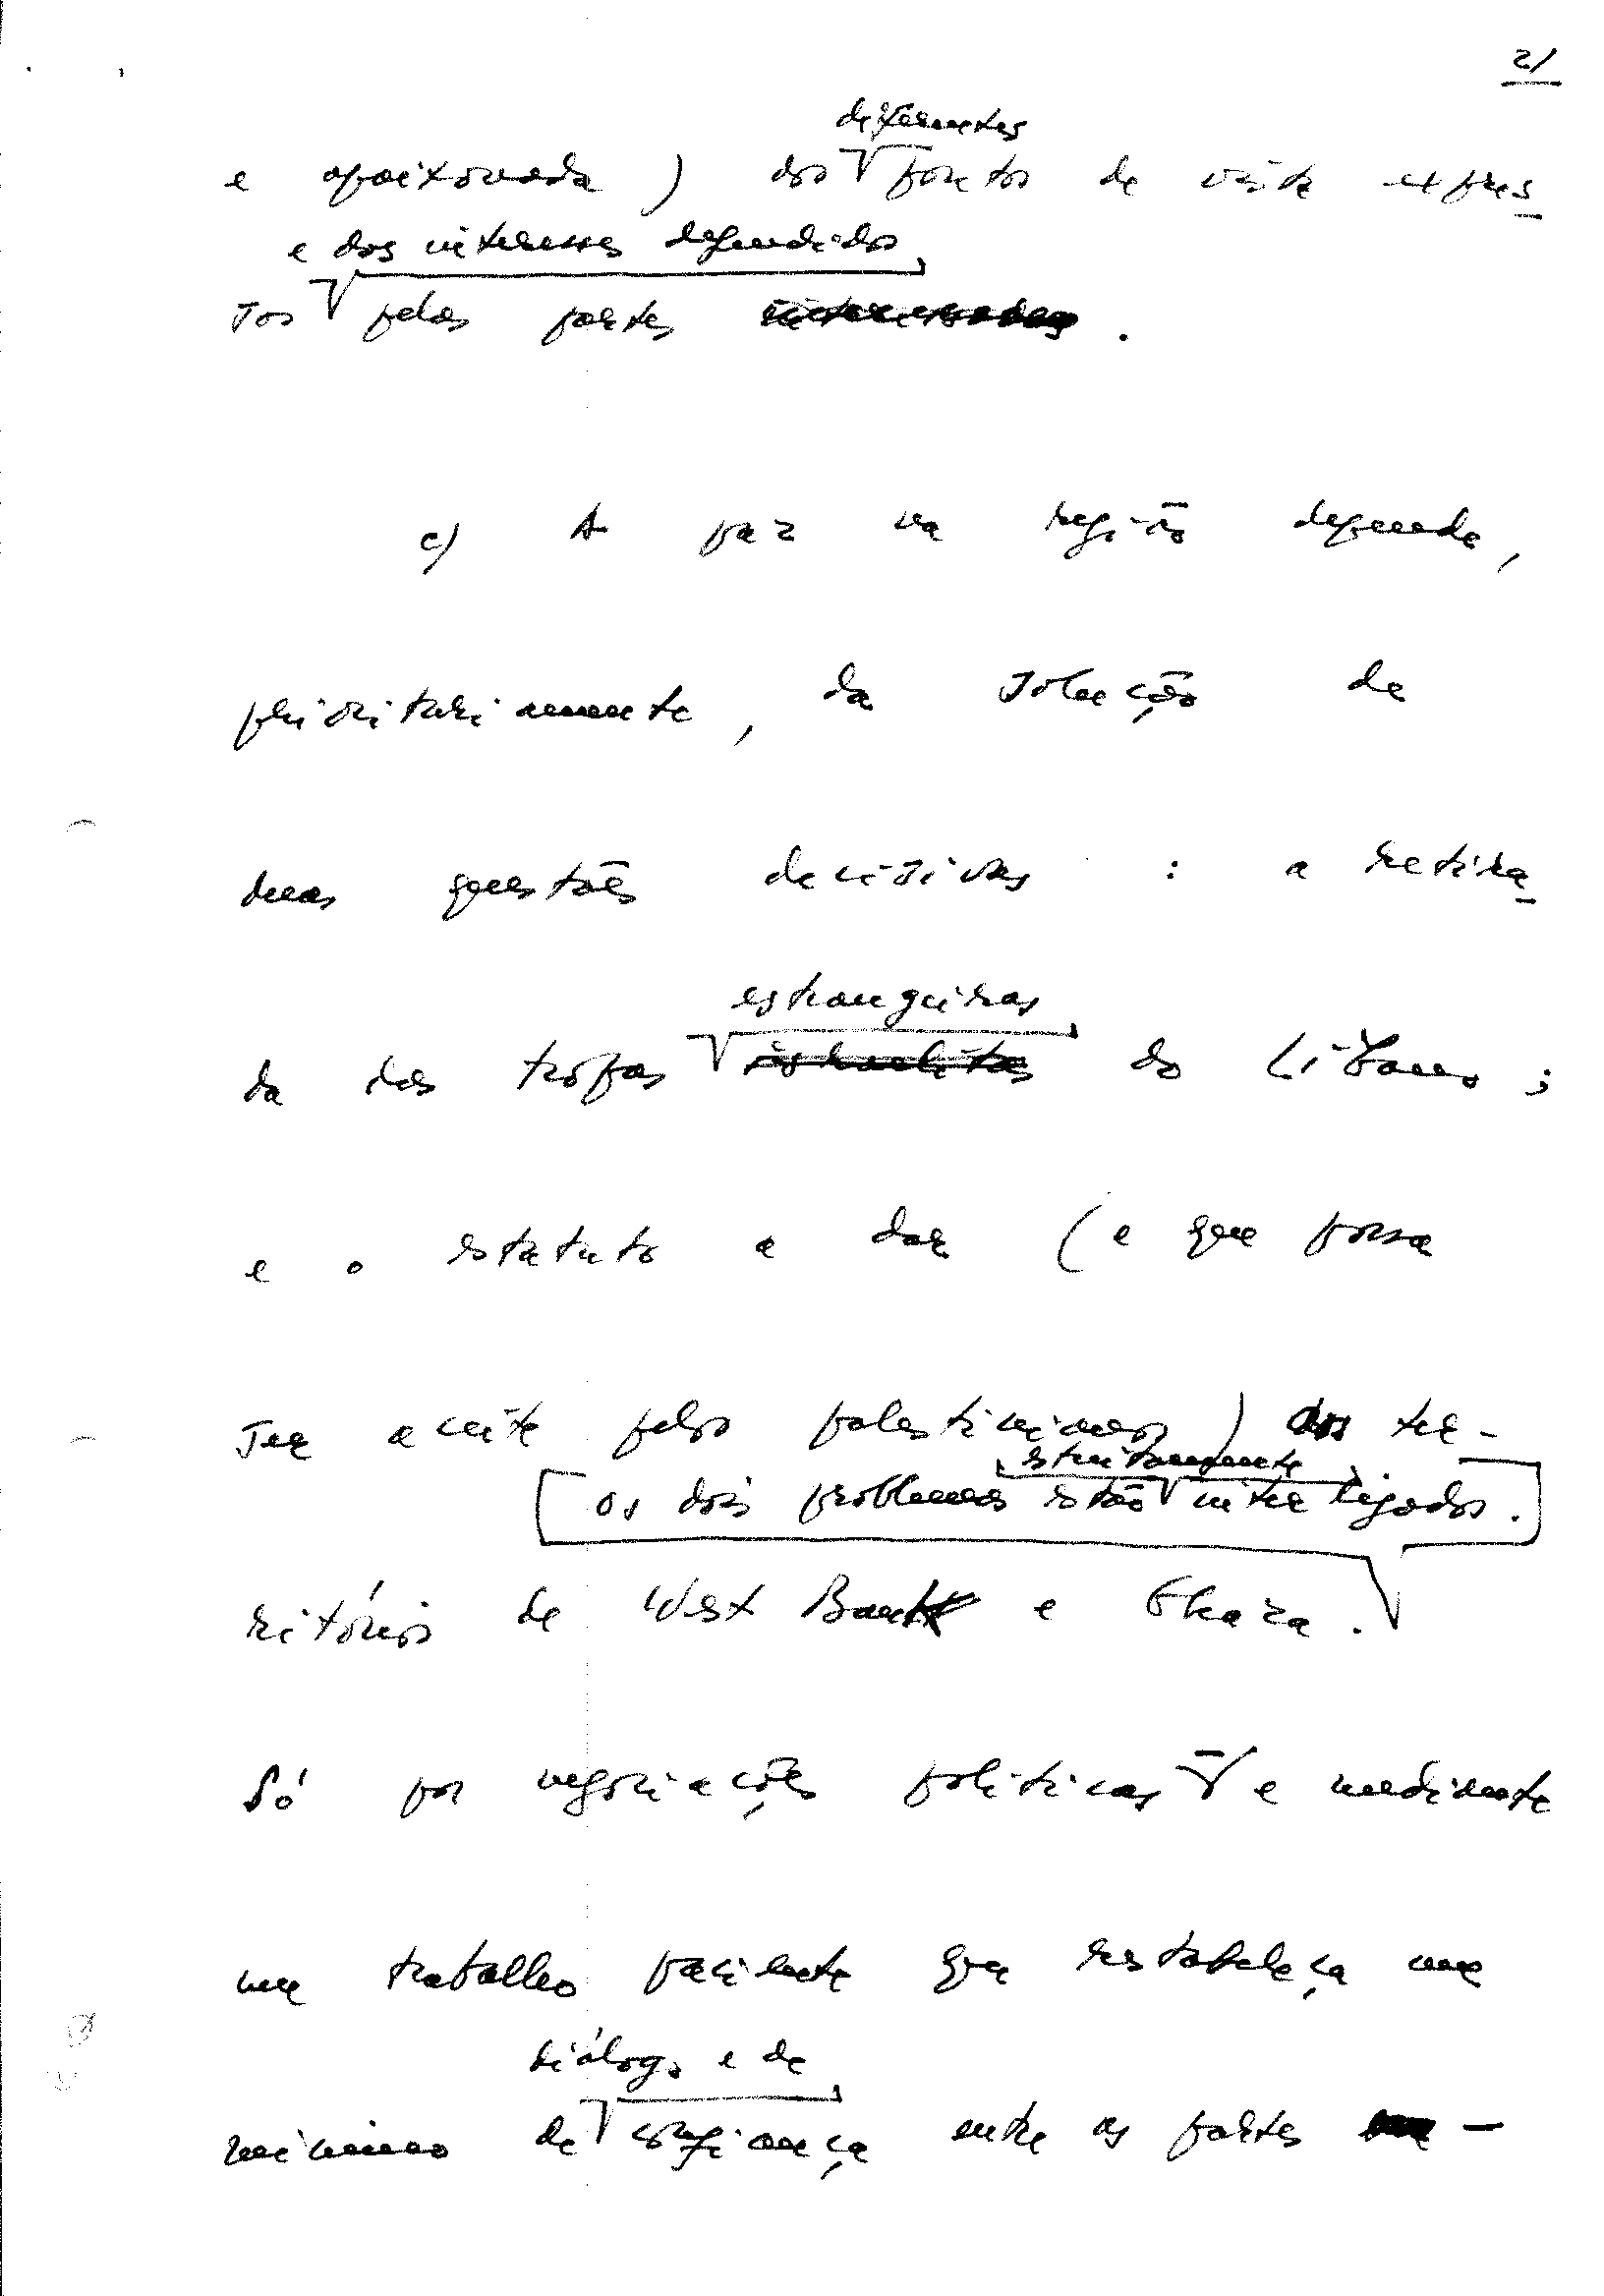 21
diferentes
e apaixonada) dos pontos de vista expres
e dos interesses defendidos
sos pelas partes interessadas.
c) A paz na região depende,
prioritariamente, da solução de
duas questões decisivas: a retira
estrangeiras
da das tropas israelitas do Líbano;
e o estatuto a dar (e que possa
ser aceite pelos palestinianos) aos ter-
estreitamente
os dois problemas estão interligados.
ritórios de West Bank e Ghaza.
Só por negociações políticas e mediante
um trabalho paciente que restabeleça um
diálogo e de
mínimo de confiança entre as partes -